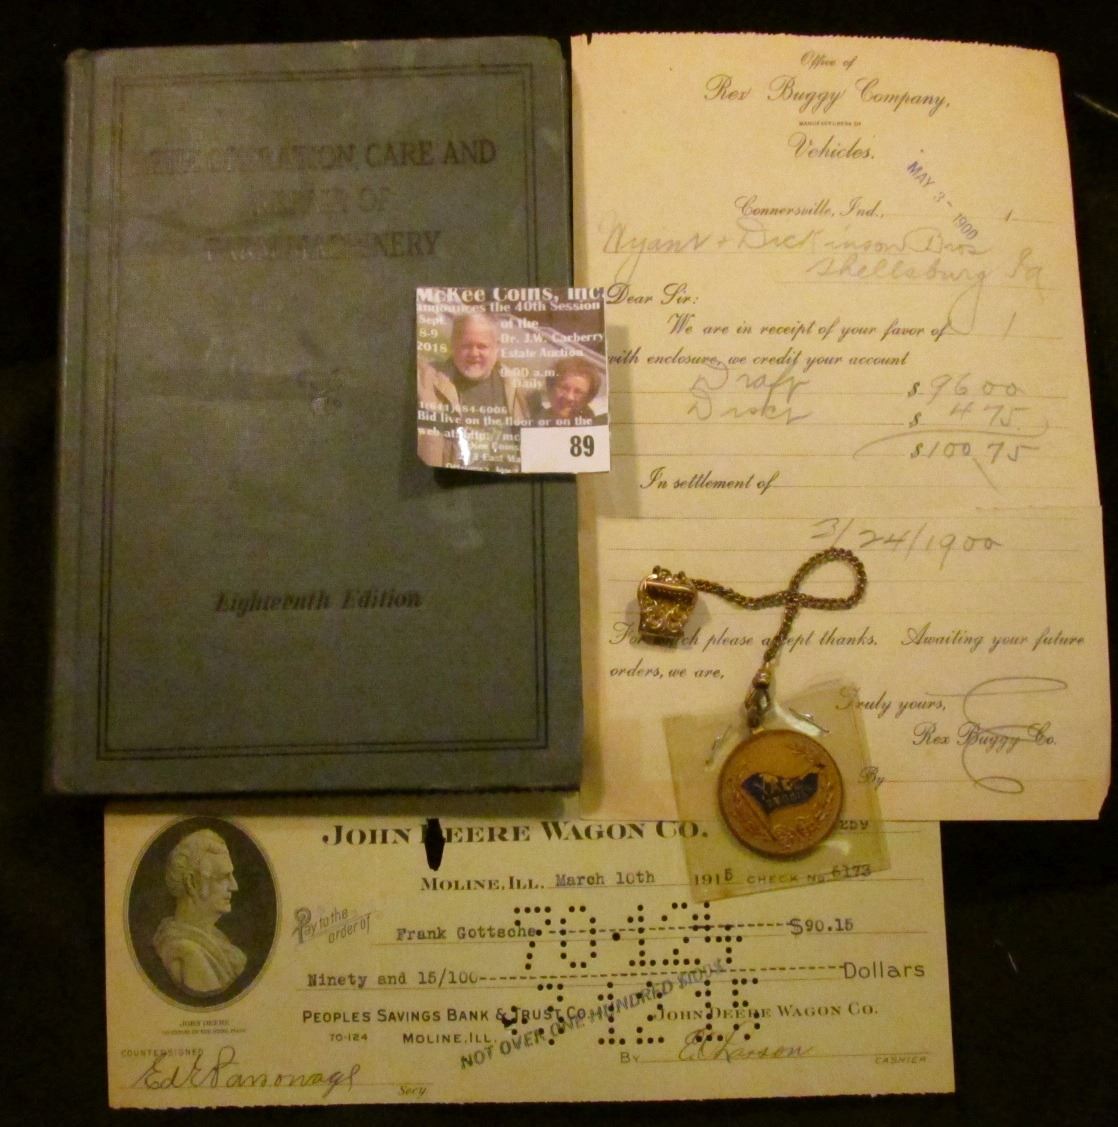 OPERATION, CARE AND
OF
FARM MACHINERY
Eighteenth Edition
McKee Coins, Inc.
announces the 40th Session
Sept. of the
8-9 Dr. J.W. Carberry
2018 Estate Auction
9:00 a.m.
Daily
1(641)484-6006
Bid live on the floor or on the
web at http://mc
89
Office of
Rex Buggy Company,
MANUFACTURERS OF
Vehicles.
MAY 3 - 1900
Connersville, Ind., 1
Dickinson Bros
Shellsburg Ia
Dear Sir:
We are in receipt of your favor of 1
with enclosure, we credit your account
Draft $ 96 00
$ 4 75
$100.75
In settlement of
3/24/1900
For which please accept thanks. Awaiting your future
orders, we are,
Truly yours,
Rex Buggy Co.
By
JOHN DEERE WAGON CO.
259
MOLINE, ILL. March 10th 1915 CHECK No. 6173
Pay to the
order of Frank Gottsche $90.15
Ninety and 15/100 Dollars
70-124
NOT OVER ONE HUNDRED
PEOPLES SAVINGS BANK & TRUST CO. JOHN DEERE WAGON CO.
70-124 MOLINE, ILL.
JOHN DEERE
COUNTERSIGNED
By CASHIER
Secy.